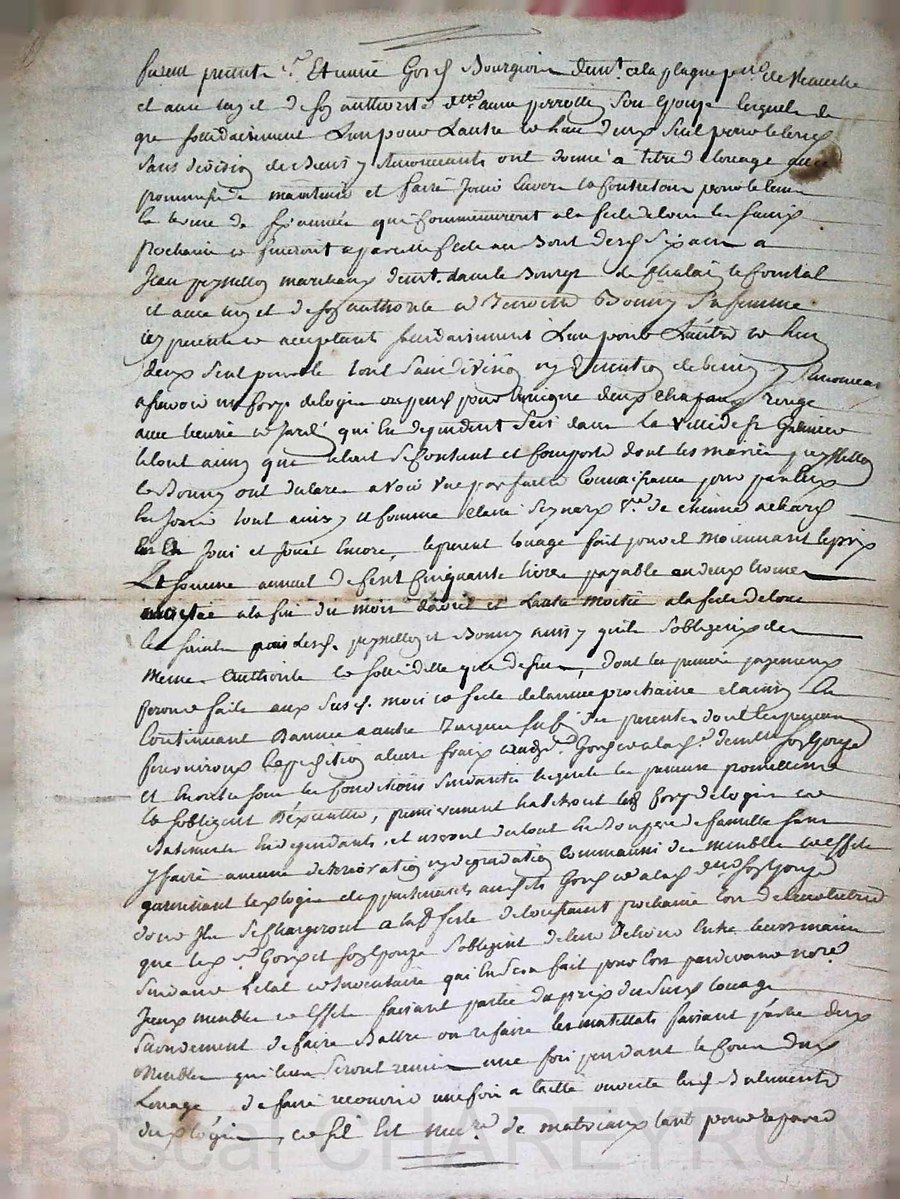 furent presents Sr. Etienne Gors Bourgeois dem.t a la plagne p.sse de
et avec luy et de son authorité d.elle anne perrolle son Epouse lesquels de
gre sollidairement l'un pour l'autre et l'un deux seul pour le tout
sans division de biens y renonceants ont donné a titre de louage avec
promesse de maintenir et faire jouir envers et contre tous pour le tems
le terme de six années qui commenceront a la fete de tous les saints
prochaine et finiront a pareille fete au bout desd. six ans a
Jean peyrellon marchand dem.t dans le Bourg de Chalain le Comtal
et avec luy et de son authorité et Bonny sa femme
icy presents et acceptants sollidairement l'un pour l'autre et l'un
deux seul pour le tout sans division ny de biens y renonceant
a sçavoir un corps de logis ayant pour enseigne deux chapeaux rouge
avec ecurie et jardin qui en dependent scis dans la ville de St
le tout ainsy que s'etend se contient et comporte dont les mariés peyrellon
et Bonny ont declaré avoir une parfaite connaissance pour par eux
en jouir tout ainsy et comme Claire Ve. de
en a joui et jouit encore, le present louage fait pour et moiennant le prix
et somme annuel de cent cinquante livres payable en deux termes
moitiée a la fin du mois d'avril et l'autre moitié a la fete de tous
les saints par lesd. peyrellon et Bonny ainsy qu'ils s'obligent de
meme authorité et sollidité que dessus, dont les premiers payements
seront faits aux susd. mois et fete de l'année prochaine et ainsy en
continuant d'année a autre jusques fin des presentes dont les preneurs
fourniront l'expedition a leurs frais aud. Sr. Gors et a lad. d.elle son Epouse
et encore sous les conditions suivantes lesquels les preneurs promettent
et s'obligent d'executer, premierement habiteront led. corps de logis et
batiments en dependants et useront du tout en bon pere de famille sans
y faire aucune deterioration ny degradation comme aussi des meubles et effets
garnissant led. logis et appartenants auxd. Gors et a lad. d.elle son Epouse
dont ils se chargeront a lad. fete de toussaint prochaine lors de
que led. Sr. Gors et son Epouse s'obligent de leur delivrer entre leurs mains
suivant l'etat et inventaire qui en sera fait pour lors pardevant notre
jceux meubles et effets faisant partie du prix du susd. louage
secondement de faire battre ou refaire les matellats faisant partie des
meubles qui leur seront remis une fois pendant le cours dud.
louage de faire recouvrir une fois a taille ouverte lesd. batiments
dud. logis, et s'il est de materiaux tant pour reparer
Pascal CHAREYRON